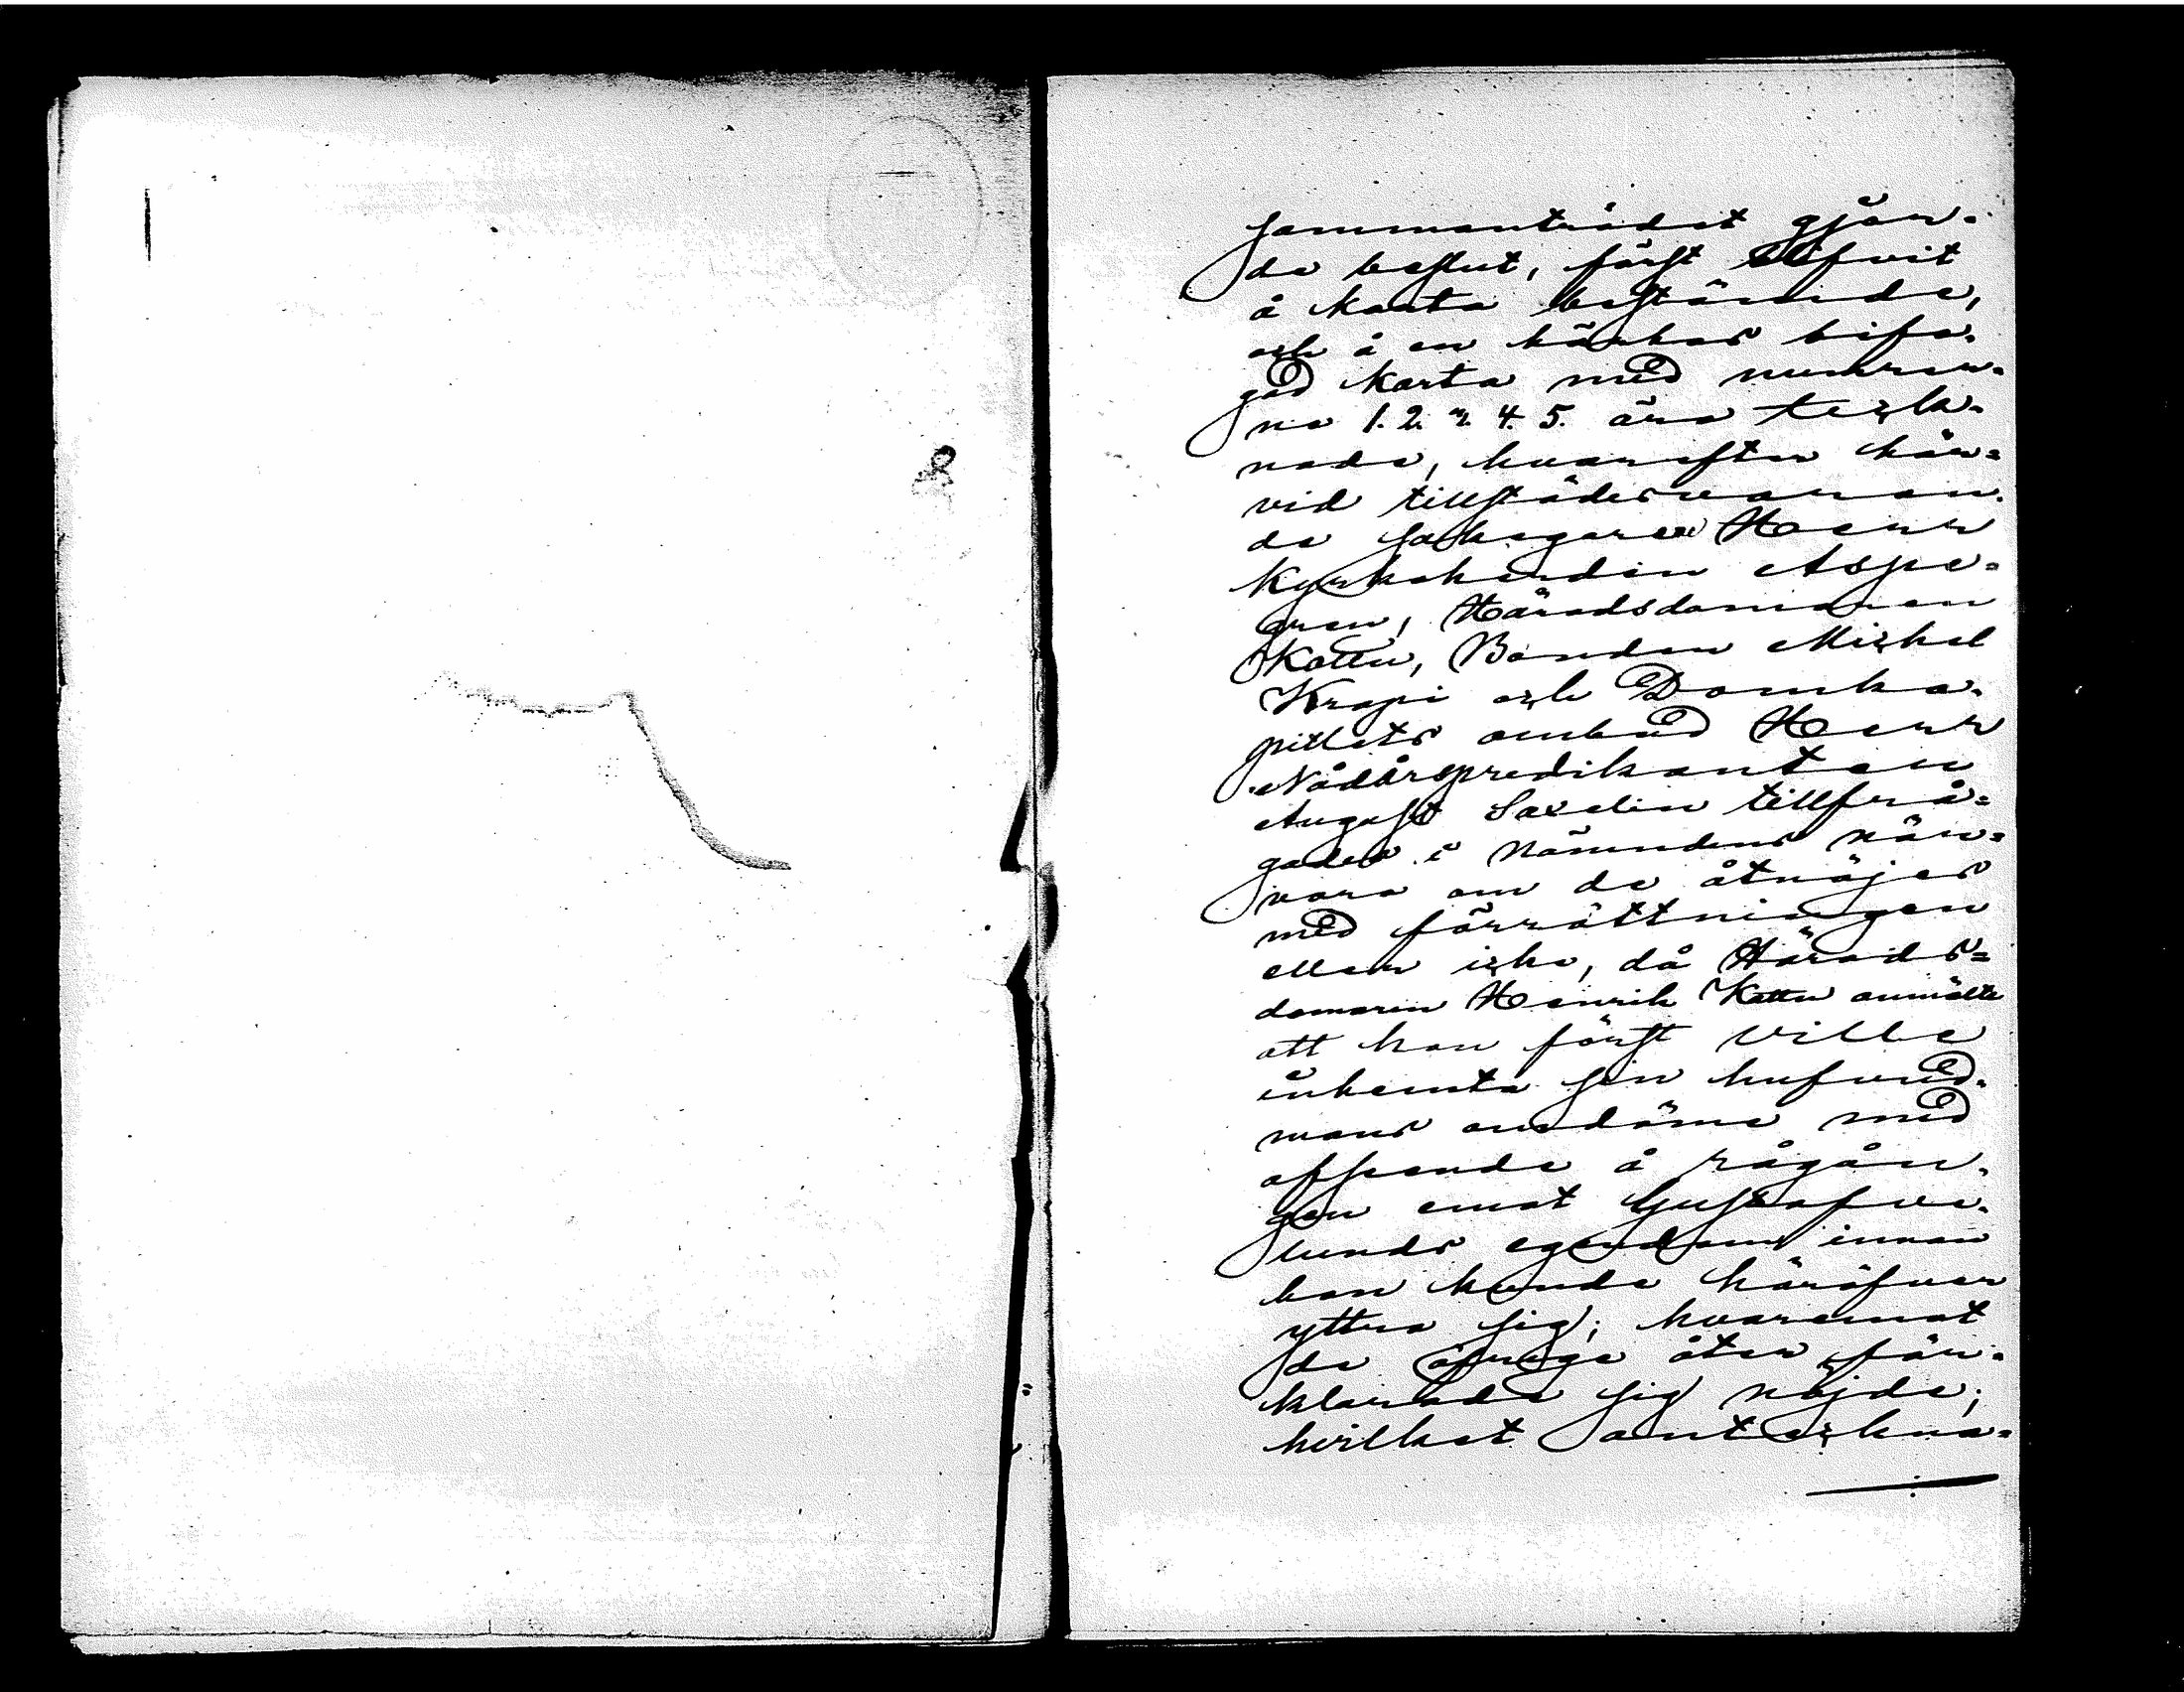 sammanträdet gjor-
da beslut, först blifvit
å karta bestämde,
och å en härhos bifo-
gad karta med numrer-
na 1. 2. 3. 4. 5. äro teck-
nade, hvarefter här-
vid tillstädesvaran-
de sakegare Herr
Kyrkoherden Aspe-
gren, Häradsdomaren
Kattu, Bonden Michel
Krapi och Domka-
pitlets ombud Herr
Nådårspredikanten
August Saxelin tillfrå-
gades i Nämndens när-
varo om de åtnöjes
med förrättningen
eller icke, då Härads-
domaren Henrik Kattu anmälte
att han först ville
inhemta sin hufvud-
mans omdöme med
afseende å rågån-
gen emot Gustafve-
lunds egendom innan
han kunde häröfver
yttra sig; hvaremot
de öfvrige åter för-
klarade sig nöjde;
hvilket antechna-